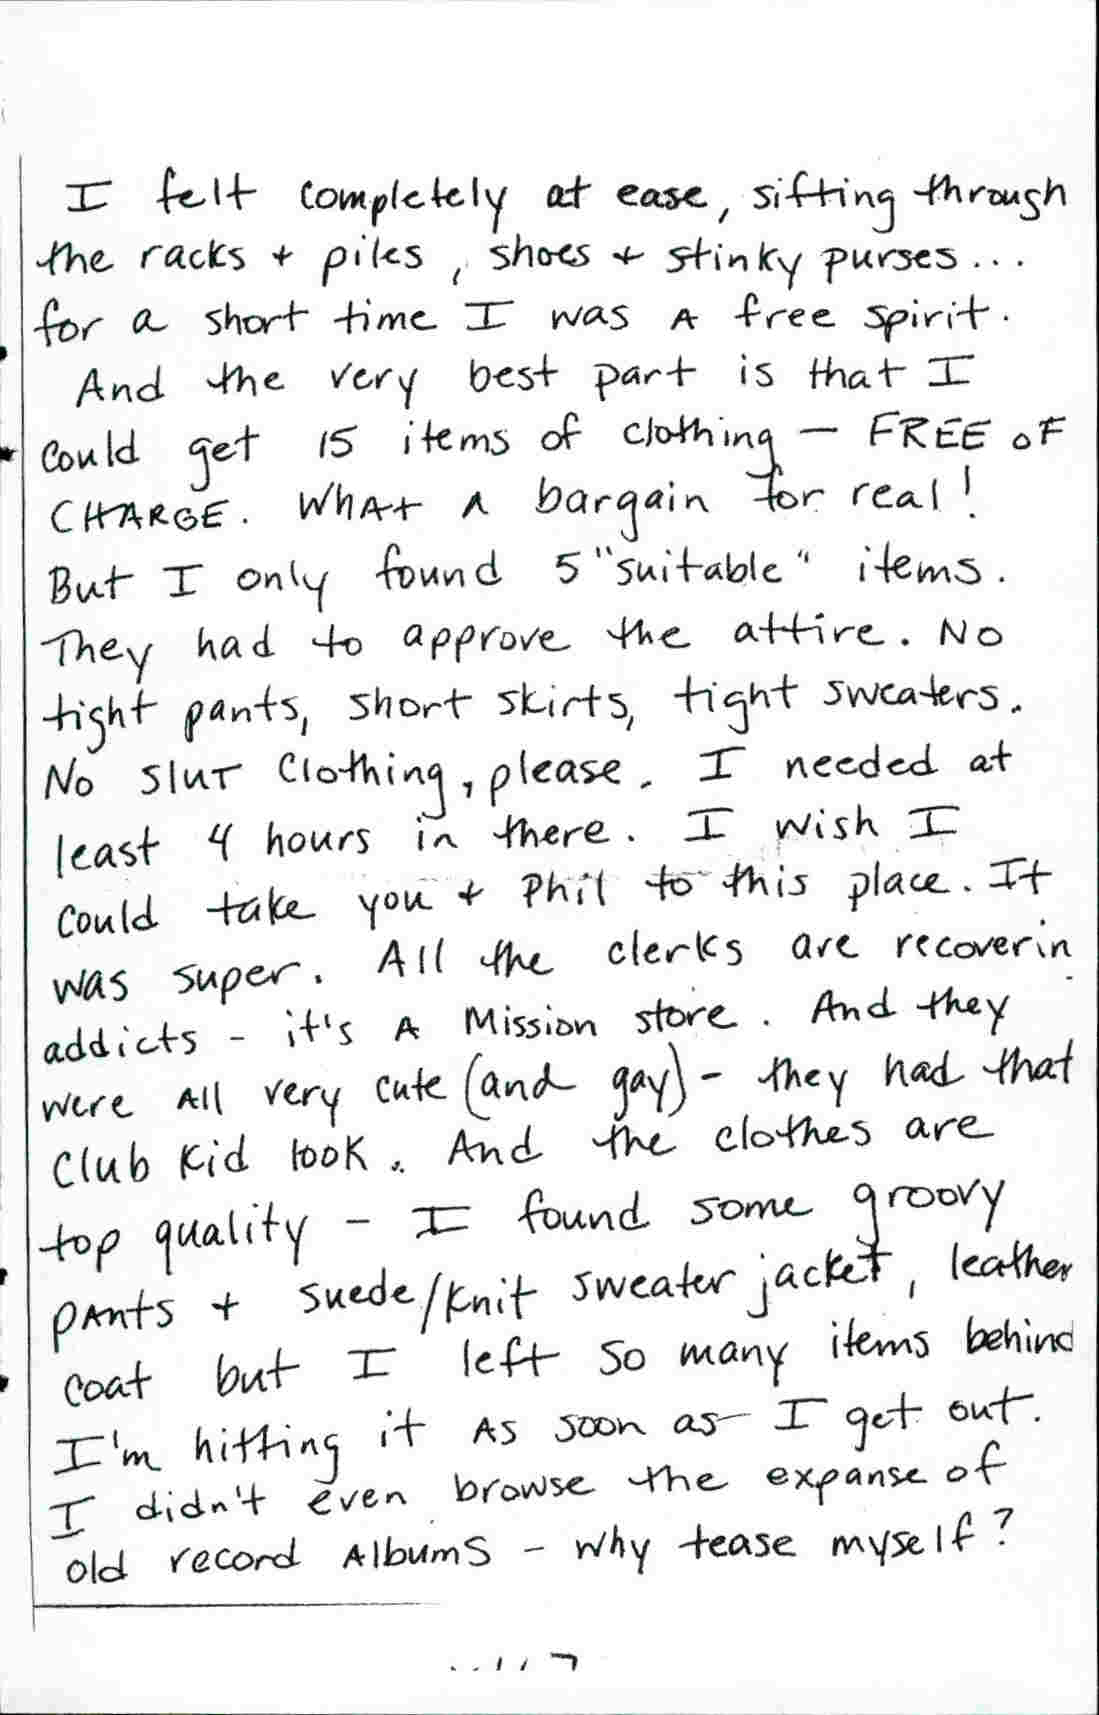 I felt completely at ease, sifting through
the racks + piles, shoes + stinky purses...
for a short time I was A free spirit.
And the very best part is that I
could get 15 items of clothing - FREE OF
CHARGE. WhAt A bargain for real!
But I only found 5 "suitable" items.
They had to approve the attire. No
tight pants, short skirts, tight sweaters.
No slut Clothing, please. I needed at
least 4 hours in there. I wish I
could take you + Phil to this place. It
was super. All the clerks are recoverin
addicts - it's A Mission store. And they
were All very cute (and gay) - they had that
Club Kid look. And the clothes are
top quality - I found some groovy
pAnts + suede/knit sweater jacket, leather
coat but I left so many items behind
I'm hitting it As soon as I get out.
I didn't even browse the expanse of
old record AlbumS - why tease myself?